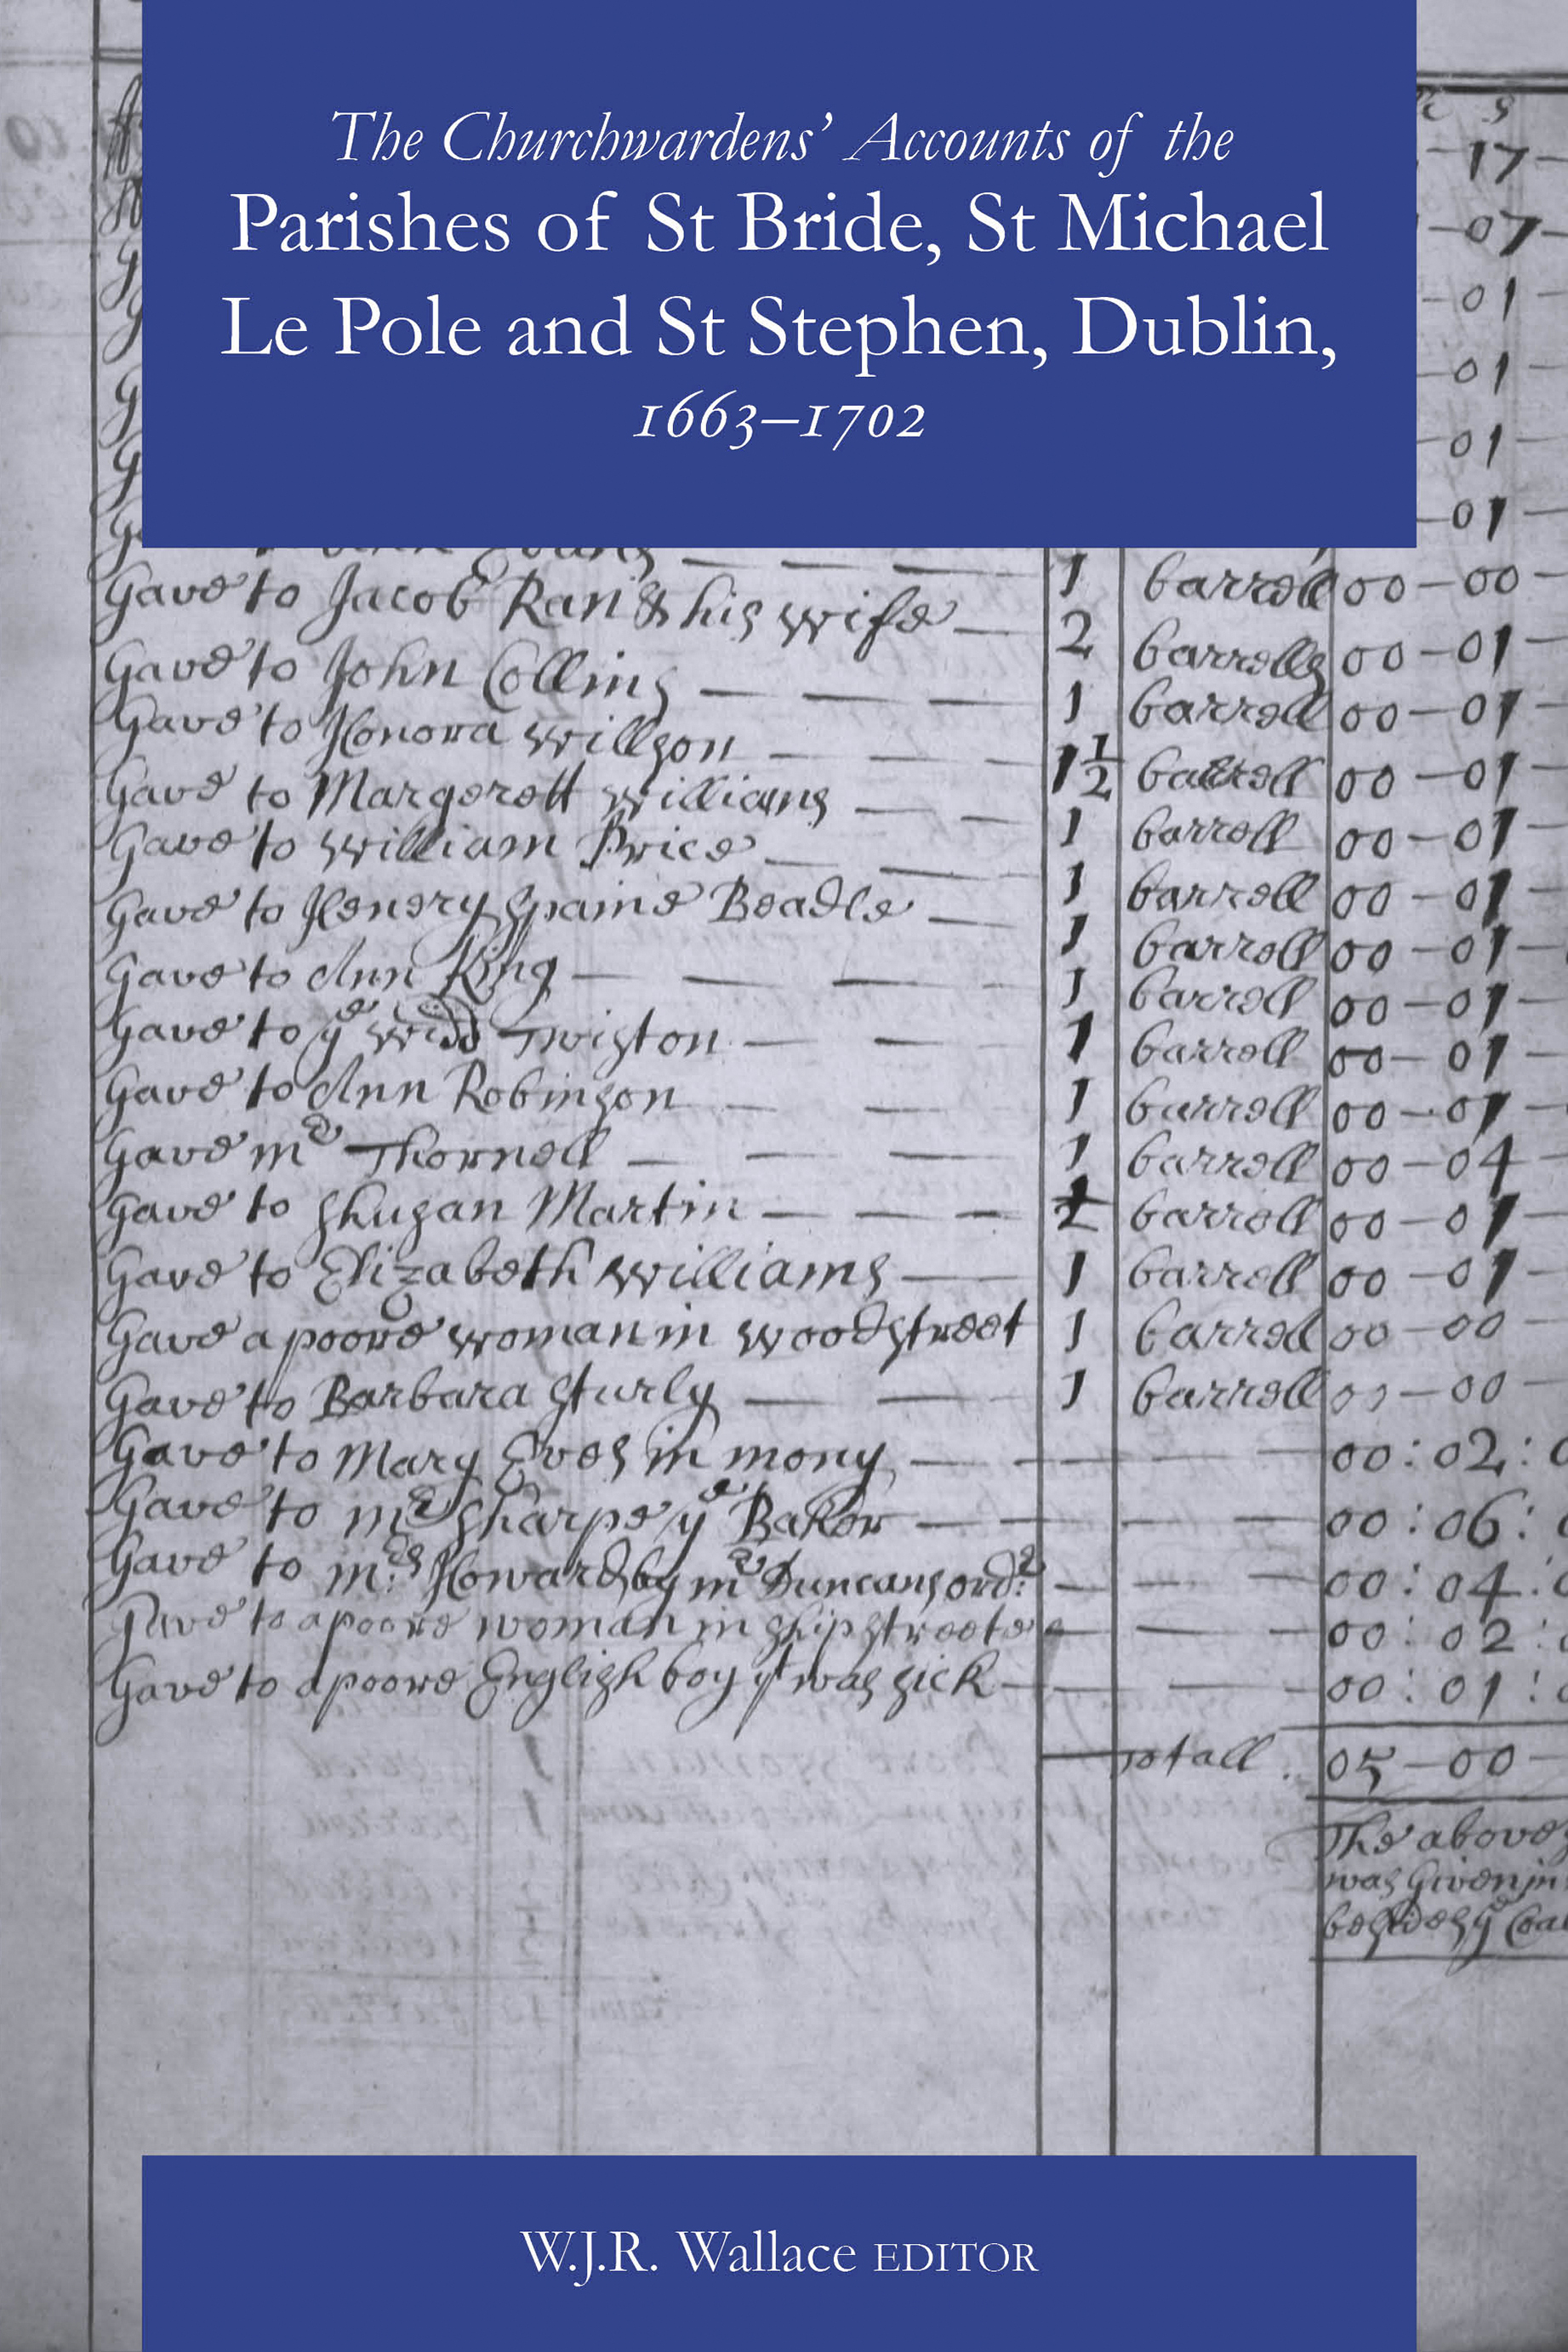 The Churchwardens' Accounts of the
Parishes of St Bride, St Michael
Le Pole and St Stephen, Dublin,
1663–1702
17
07
01
01
01
01
1 barrell 00–00
Gave to Jacob Ran & his wife 2 barrells 00–01
Gave to John Collins 1 barrell 00–01
Gave to Honora Willson 1½ barrell 00–01
Gave to Margerett Williams 1 barrell 00–01
Gave to William Price 1 barrell 00–01
Gave to Henery Spaine Beadle 1 barrell 00–01
Gave to Ann King 1 barrell 00–01
Gave to ye Widd Twiston 1 barrell 00–01
Gave to Ann Robinson 1 barrell 00–01
Gave mr Thornell 1 barrell 00–04
Gave to Shusan Martin barrell 00–01
Gave to Elizabeth Williams 1 barrell 00–01
Gave a poore woman in woodstreet 1 barrell 00–00
Gave to Barbara Sturly 1 barrell 00–00
Gave to Mary Eves in mony 00:02:0
Gave to mr Sharpe ye Baker 00:06:
Gave to mrs Howard by mr Duncans ordr 00:04:0
Gave to a poore woman in ship streete 00:02:
Gave to a poore English boy yt was sick 00:01:0
Totall 05–00
The above
was Given in
besides ye Coal
W.J.R. Wallace EDITOR